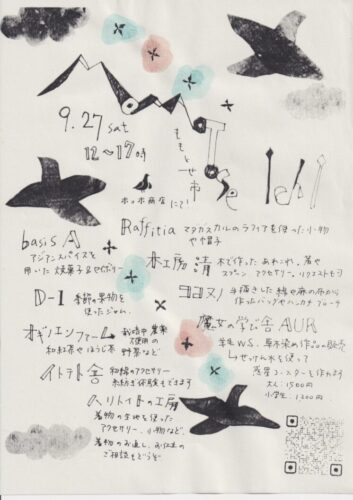 MomoTose Ichi
9.27 sat
12〜17時
ももとせ市
ホッホ商店にて
Raffitia マダガスカルのラフィアを使った小物
や帽子
basis A
アジアンスパイスを
用いた焼菓子&セイボリー
木工房 請 木で作ったあれこれ。箸や
スプーン アクセサリー。リクエストも可
D-1 季節の果物を
使ったジャム。
手描きした綿や麻の布から
作ったバッグやハンカチ ブローチ
オギノエンファーム 栽培中農薬
不使用の
和紅茶やほうじ茶 野菜など
魔女の学び舎 AUR
羊毛W.S. 草木染め作品の販売
イトテト舎 和綿のアクセサリー
糸紡ぎ体験もできます
しぜんけん木を使って
浅草コースターを作ろう
大人:1500円
小学生:1200円
ヘリトイトの工房
着物の生地を使った
アクセサリー、小物など
着物のお直し、お仕立の
ご相談もどうぞ